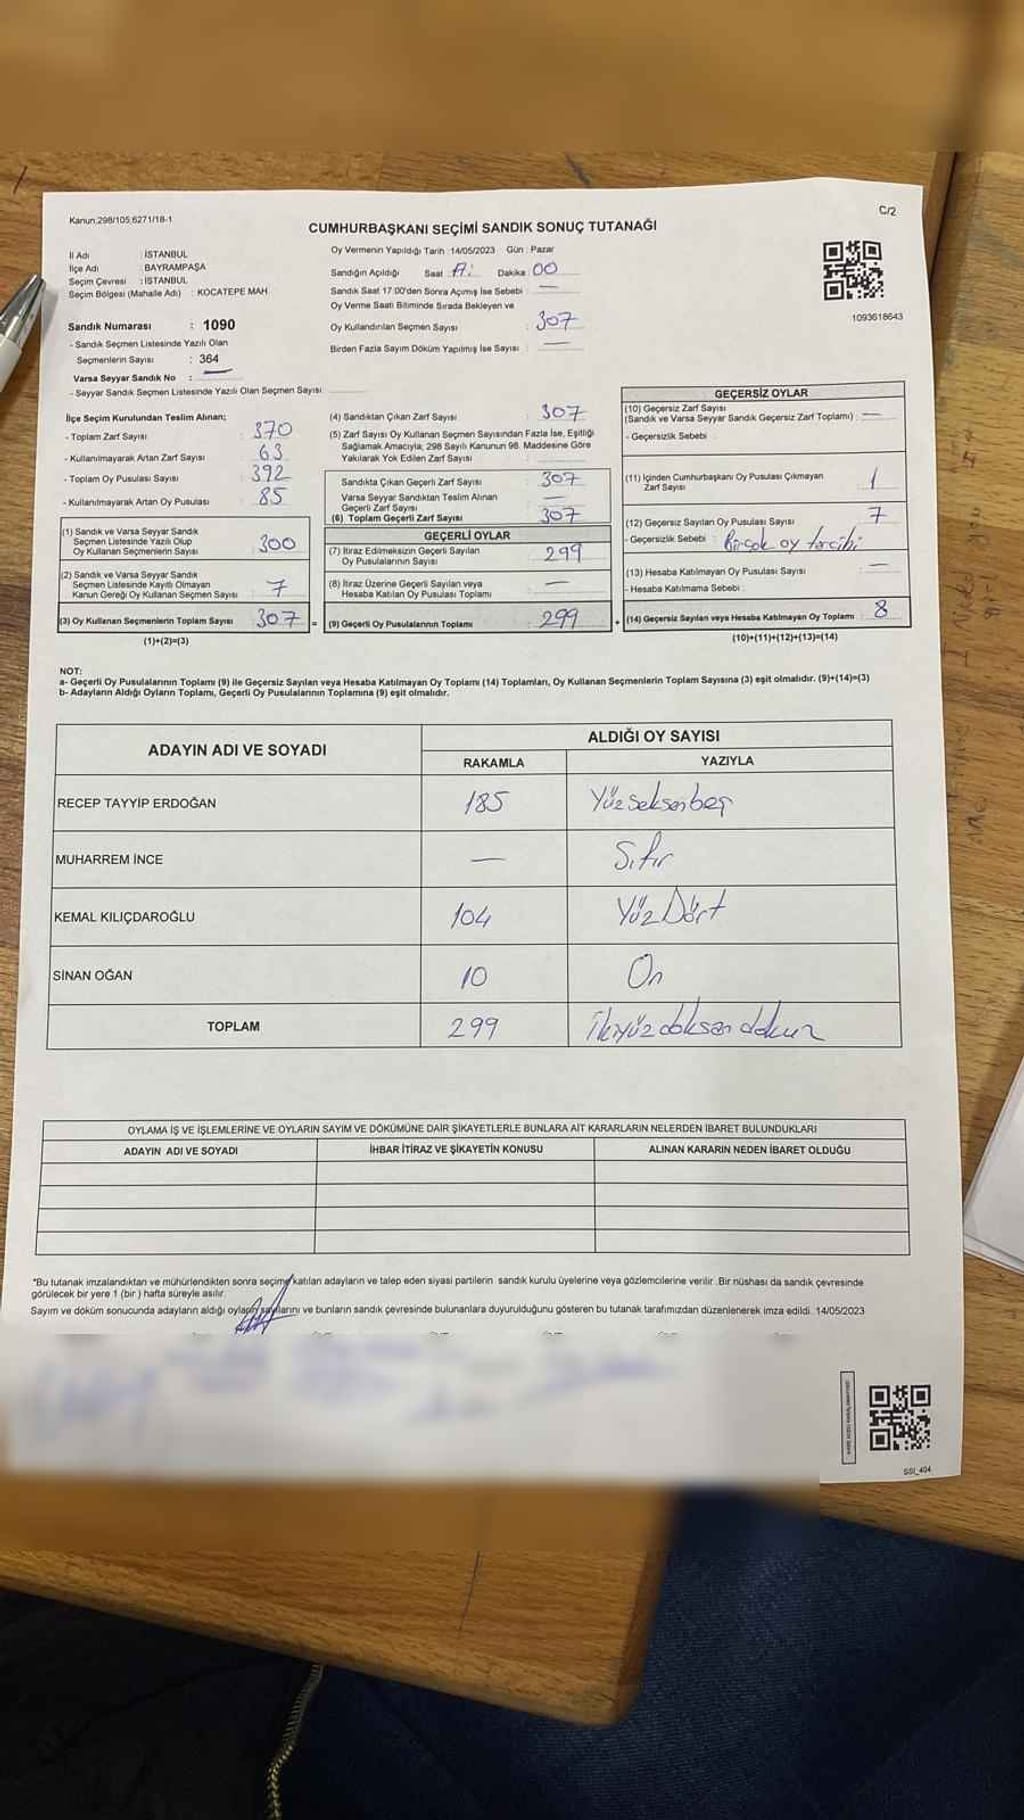 Kanun.298/105;6271/18-1
C/2
CUMHURBAŞKANI SEÇİMİ SANDIK SONUÇ TUTANAĞI
İl Adı : İSTANBUL
İlçe Adı : BAYRAMPAŞA
Seçim Çevresi : İSTANBUL
Seçim Bölgesi (Mahalle Adı) : KOCATEPE MAH.
Sandık Numarası : 1090
- Sandık Seçmen Listesinde Yazılı Olan
Seçmenlerin Sayısı : 364
Varsa Seyyar Sandık No : —
- Seyyar Sandık Seçmen Listesinde Yazılı Olan Seçmen Sayısı:
Oy Vermenin Yapıldığı Tarih :14/05/2023 Gün : Pazar
Sandığın Açıldığı Saat : Dakika : 00
Sandık Saat 17:00'den Sonra Açımış İse Sebebi : —
Oy Verme Saati Bitiminde Sırada Bekleyen ve
Oy Kullandırılan Seçmen Sayısı : 307
Birden Fazla Sayım Döküm Yapılmış İse Sayısı : —
1093618643
İlçe Seçim Kurulundan Teslim Alınan;
- Toplam Zarf Sayısı : 370
- Kullanılmayarak Artan Zarf Sayısı : 63
- Toplam Oy Pusulası Sayısı : 392
- Kullanılmayarak Artan Oy Pusulası : 85
(1) Sandık ve Varsa Seyyar Sandık
Seçmen Listesinde Yazılı Olup
Oy Kullanan Seçmenlerin Sayısı : 300
(2) Sandık ve Varsa Seyyar Sandık
Seçmen Listesinde Kayıtlı Olmayan
Kanun Gereği Oy Kullanan Seçmen Sayısı : 7
(3) Oy Kullanan Seçmenlerin Toplam Sayısı : 307 =
(1)+(2)=(3)
(4) Sandıktan Çıkan Zarf Sayısı : 307
(5) Zarf Sayısı Oy Kullanan Seçmen Sayısından Fazla İse, Eşitliği
Sağlamak Amacıyla, 298 Sayılı Kanunun 98. Maddesine Göre
Yakılarak Yok Edilen Zarf Sayısı :
Sandıkta Çıkan Geçerli Zarf Sayısı : 307
Varsa Seyyar Sandıktan Teslim Alınan
Geçerli Zarf Sayısı : —
(6) Toplam Geçerli Zarf Sayısı : 307
GEÇERLİ OYLAR
(7) İtiraz Edilmeksizin Geçerli Sayılan
Oy Pusulalarının Sayısı : 299
(8) İtiraz Üzerine Geçerli Sayılan veya
Hesaba Katılan Oy Pusulası Toplamı : —
(9) Geçerli Oy Pusulalarının Toplamı : 299 +
GEÇERSİZ OYLAR
(10) Geçersiz Zarf Sayısı
(Sandık ve Varsa Seyyar Sandık Geçersiz Zarf Toplamı) : —
- Geçersizlik Sebebi :
(11) İçinden Cumhurbaşkanı Oy Pusulası Çıkmayan
Zarf Sayısı : 1
(12) Geçersiz Sayılan Oy Pusulası Sayısı : 7
- Geçersizlik Sebebi : Birçok oy tercihi
(13) Hesaba Katılmayan Oy Pusulası Sayısı : —
- Hesaba Katılmama Sebebi :
(14) Geçersiz Sayılan veya Hesaba Katılmayan Oy Toplamı : 8
(10)+(11)+(12)+(13)=(14)
NOT:
a- Geçerli Oy Pusulalarının Toplamı (9) ile Geçersiz Sayılan veya Hesaba Katılmayan Oy Toplamı (14) Toplamları, Oy Kullanan Seçmenlerin Toplam Sayısına (3) eşit olmalıdır. (9)+(14)=(3)
b- Adayların Aldığı Oyların Toplamı, Geçerli Oy Pusulalarının Toplamına (9) eşit olmalıdır.
ADAYIN ADI VE SOYADI
ALDIĞI OY SAYISI
RAKAMLA YAZIYLA
RECEP TAYYİP ERDOĞAN 185 Yüzseksenbeş
MUHARREM İNCE — Sıfır
KEMAL KILIÇDAROĞLU 104 YüzDört
SİNAN OĞAN 10 On
TOPLAM 299 İkiyüzdoksandokuz
OYLAMA İŞ VE İŞLEMLERİNE VE OYLARIN SAYIM VE DÖKÜMÜNE DAİR ŞİKAYETLERLE BUNLARA AİT KARARLARIN NELERDEN İBARET BULUNDUKLARI
ADAYIN ADI VE SOYADI İHBAR İTİRAZ VE ŞİKAYETİN KONUSU ALINAN KARARIN NEDEN İBARET OLDUĞU
*Bu tutanak imzalandıktan ve mühürlendikten sonra seçime katılan adayların ve talep eden siyasi partilerin sandık kurulu üyelerine veya gözlemcilerine verilir .Bir nüshası da sandık çevresinde
görülecek bir yere 1 (bir ) hafta süreyle asılır.
Sayım ve döküm sonucunda adayların aldığı oyların sayılarını ve bunların sandık çevresinde bulunanlara duyurulduğunu gösteren bu tutanak tarafımızdan düzenlenerek imza edildi. 14/05/2023
SSI_404